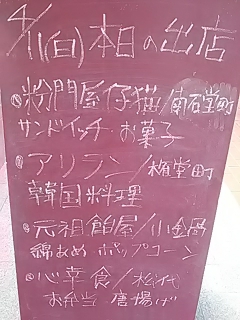 4/11(日)本日の出店
粉門屋仔猫/南石堂町
サンドイッチ・お菓子
アリラン/権堂町
韓国料理
元祖飴屋/小金
綿あめ・ポップコーン
心幸食/松代
お弁当 唐揚げ